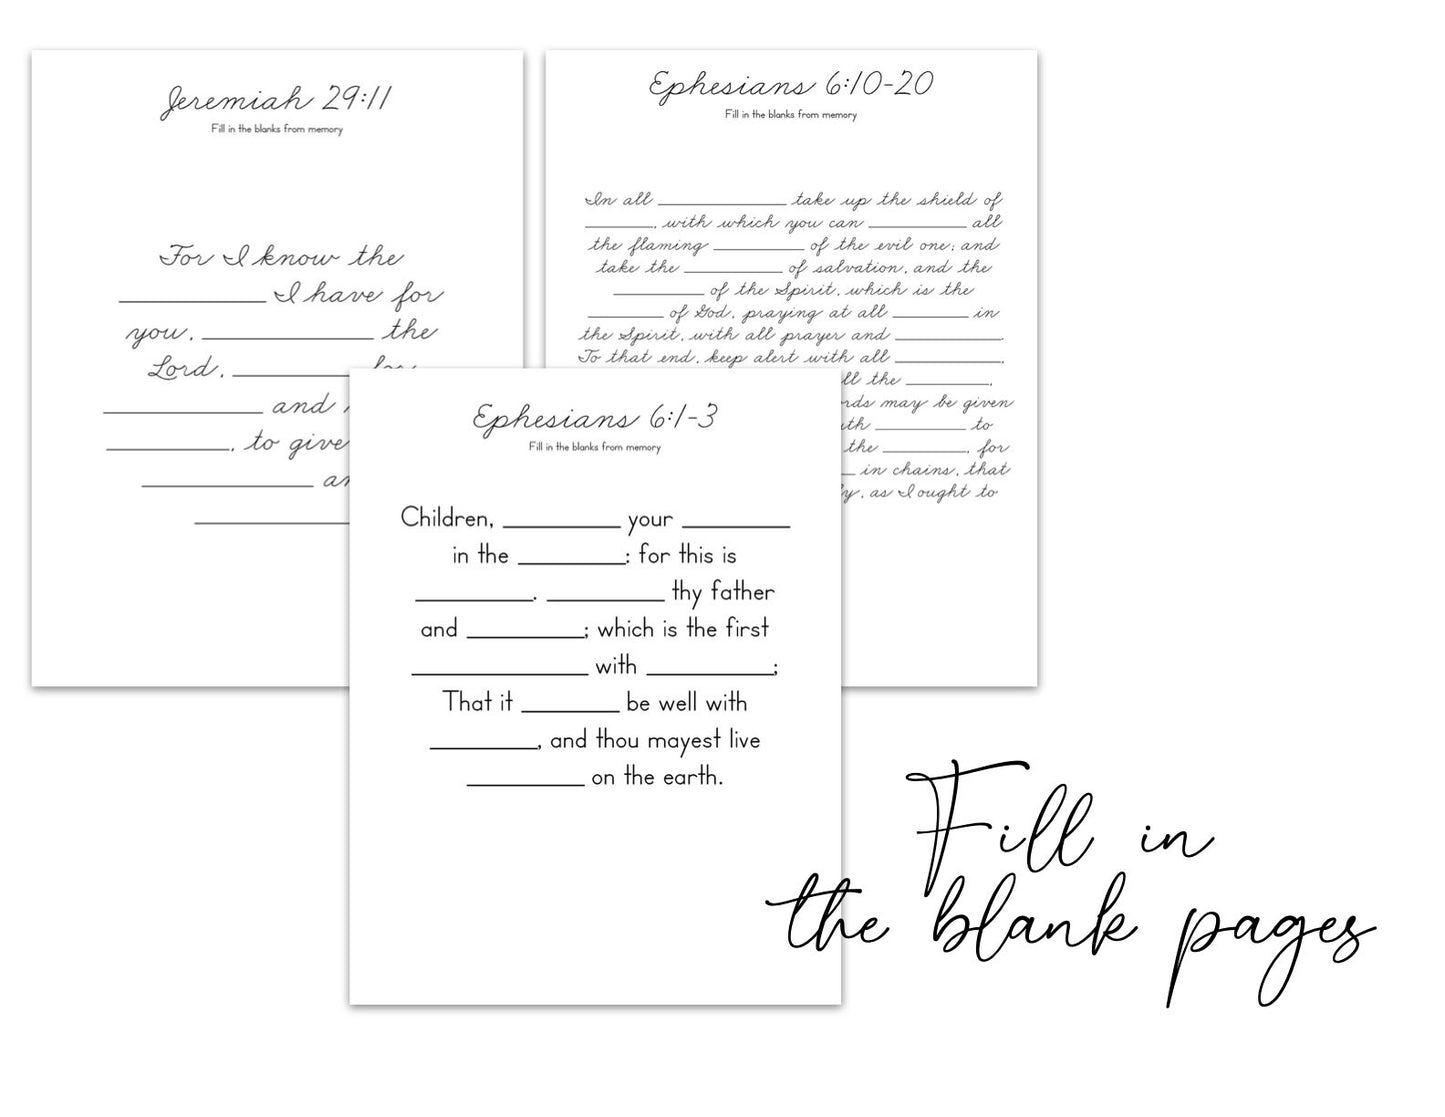 Jeremiah 29:11
Fill in the blanks from memory
For I know the
____________ I have for
you, ______________ the
Lord, ____________ for
_____________ and
__________, to give
______________ an
_____________
Ephesians 6:10-20
Fill in the blanks from memory
In all ______________ take up the shield of
________, with which you can ___________ all
the flaming __________ of the evil one; and
take the ___________ of salvation, and the
__________ of the Spirit, which is the
________ of God, praying at all ________ in
the Spirit, with all prayer and ____________.
To that end, keep alert with all ____________,
ll the _________,
rds may be given
th __________ to
the _________, for
__ in chains, that
y, as I ought to
Ephesians 6:1-3
Fill in the blanks from memory
Children, ____________ your ___________
in the ___________: for this is
____________. ____________ thy father
and ____________; which is the first
__________________ with _____________;
That it __________ be well with
___________, and thou mayest live
____________ on the earth.
Fill in
the blank pages